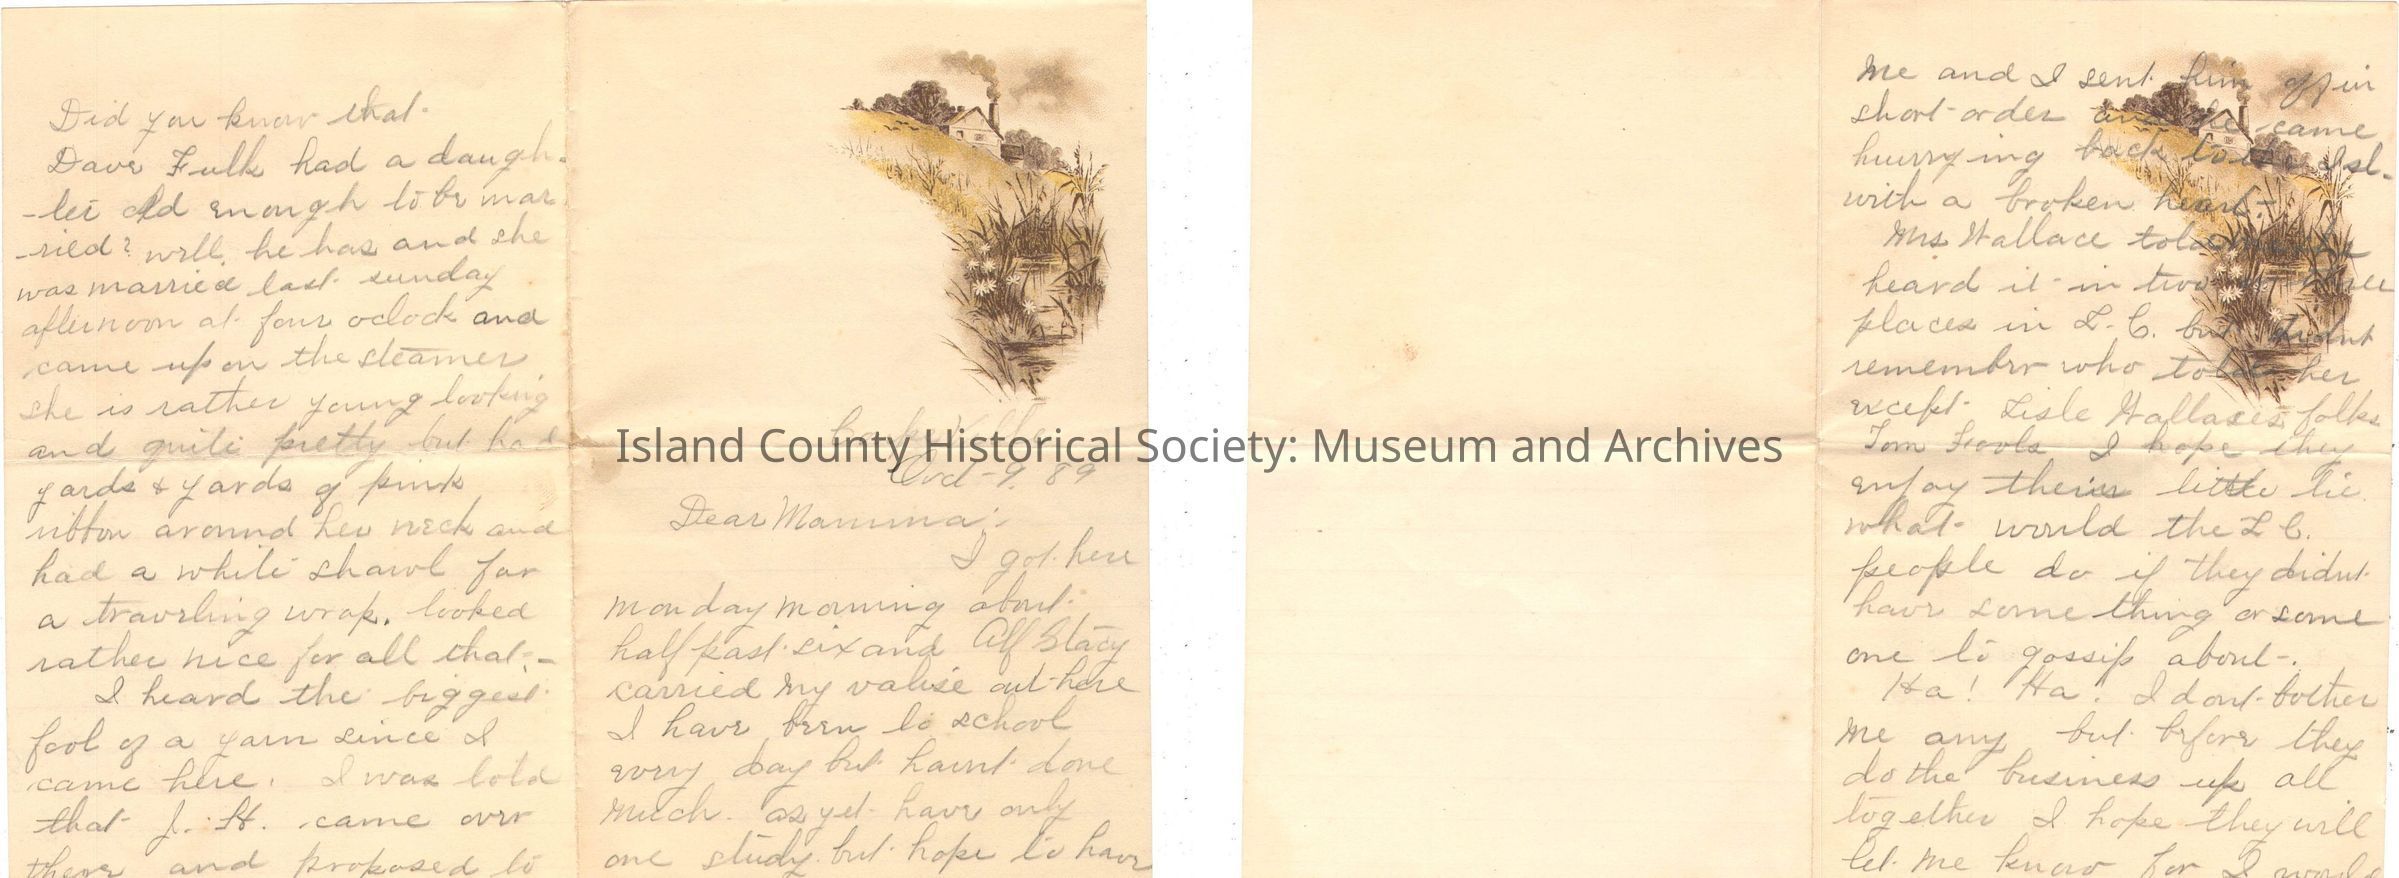 Did you know that
Dave Fulk had a daugh-
-ter old enough to be mar
-ried? well, he has and she
was married last sunday
afternoon at four oclock and
came up on the steamer
she is rather young looking
and quite pretty but had
yards & yards of pink
ribbon around her neck and
had a white shawl for
a traveling wrap. looked
rather nice for all that.-
I heard the biggest
fool of a yarn since I
came here. I was told
that J. H. came over
there and proposed to
Oct-9, 89
Dear Mamma;-
I got here
monday morning about
half past six and Alf Stacy
carried my valise out here
I have been to school
every day but haint done
much. as yet have only
one study but hope to have
me and I sent him off in
short order and he came
hurrying back to the Isl.
with a broken heart.-
Mrs Wallace told
heard it in two
places in L. C. but didnt
remember who told her
except Lisle Wallases folks
Tom Fools I hope they
enjoy their little lie.
what would the L C.
people do if they didnt
have some thing or some
one to gossip about-.
Ha! Ha! I dont bother
me any but before they
do the business up all
together I hope they will
let me know for I would
Island County Historical Society: Museum and Archives